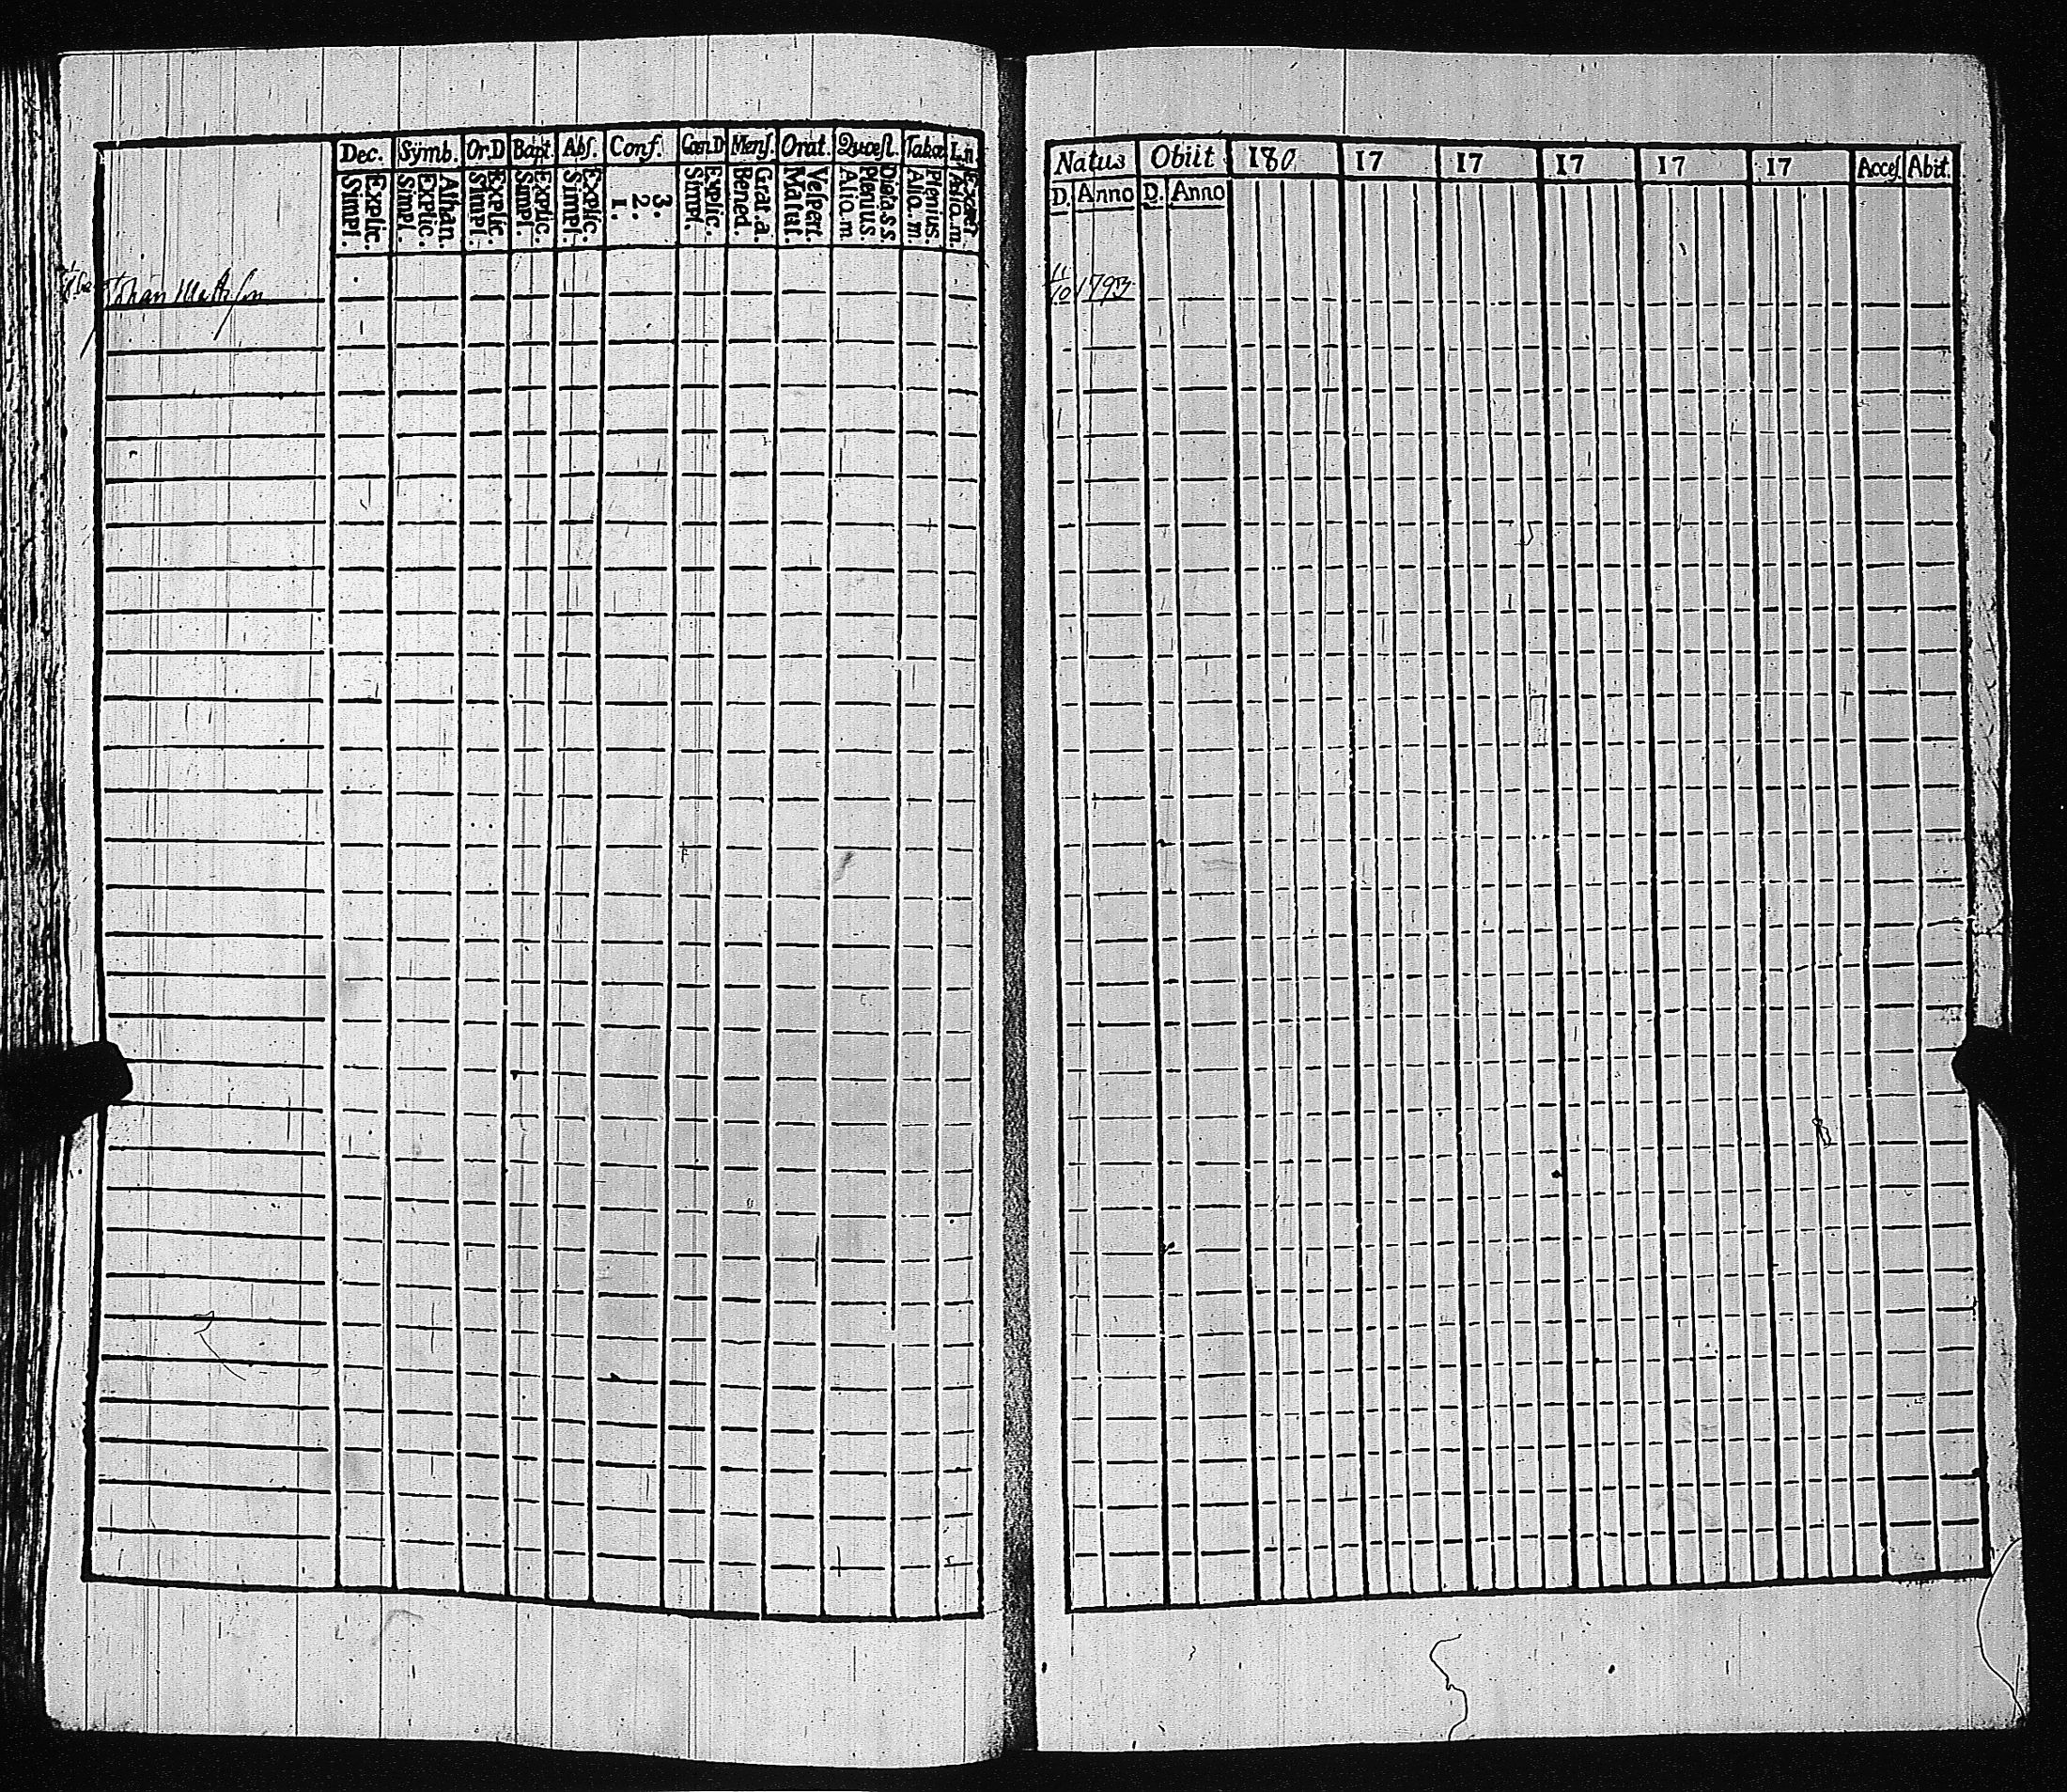 Dec. Symb. Or.D Bapt. Abſ. Conf. Cœn.D Menſ. Orat. Quæſt. Tabæ
Explic. Simpl. Athan. Explic. Simpl. Explic. Simpl. Explic. Simpl. Explic. Simpl. 3. 2. 1. Explic. Simpl. Grat. a. Bened. Veſpert. Matut. Dicta. S.S. Plenius. Aliq. m. Plenius. Aliq. m. Exacte Aliq. m.
Johan Matsson
Natus Obiit 180 17 17 17 17 17 Acceſ. Abit.
D. Anno D. Anno
11/10 1793